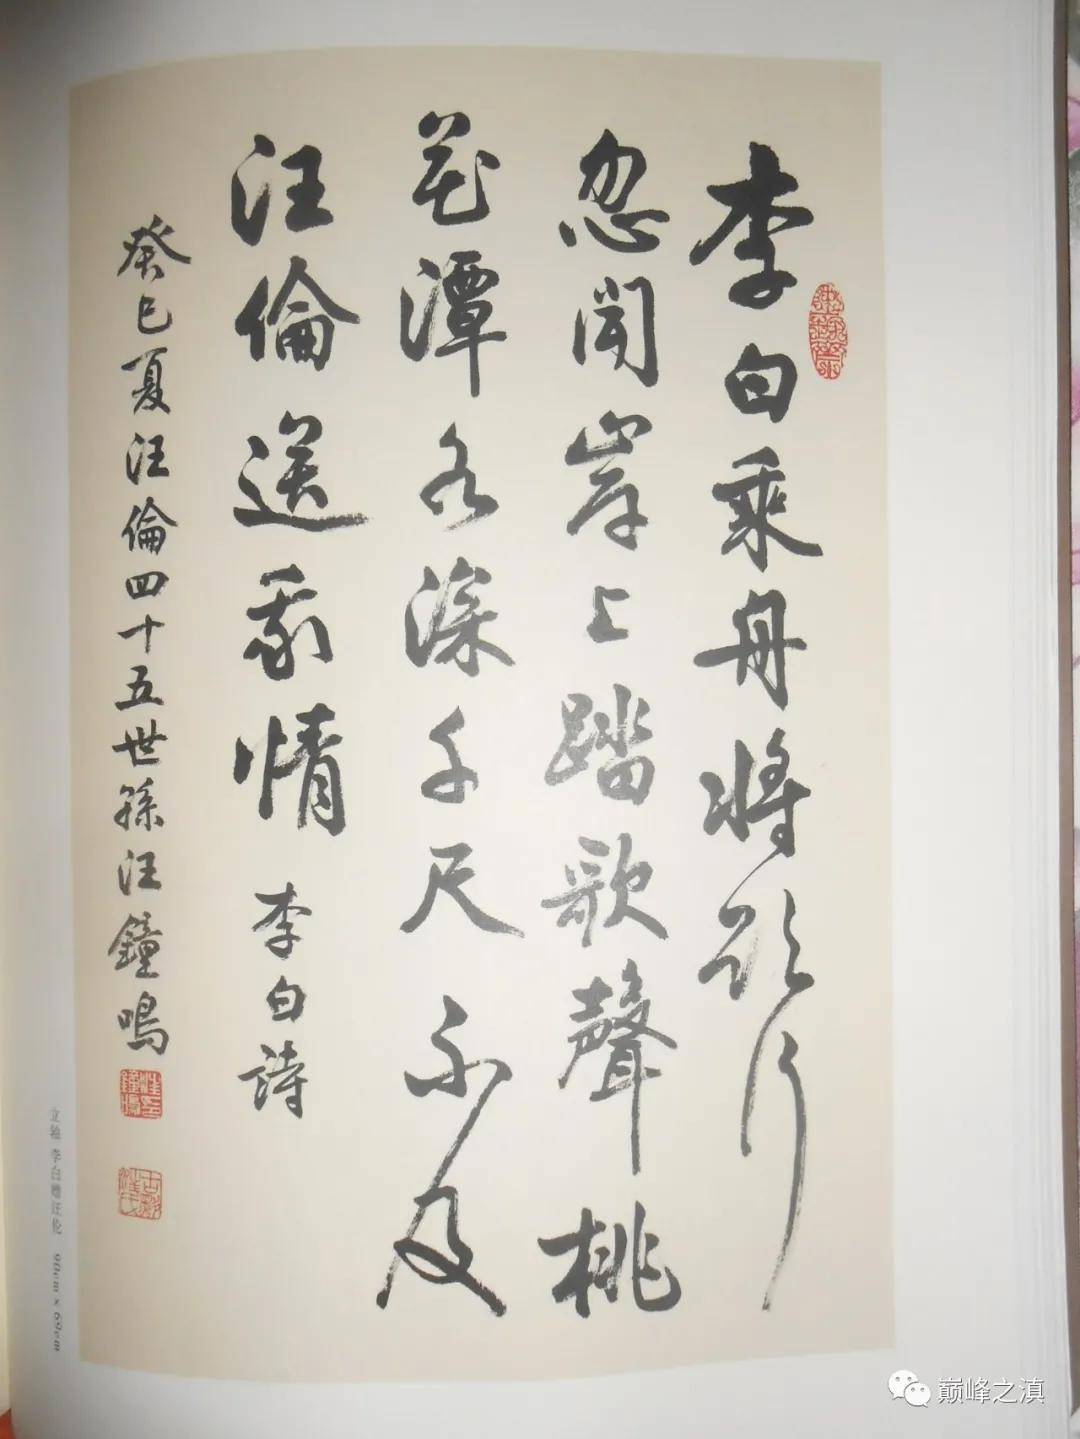 李白乘舟將欲行
忽聞岸上踏歌聲桃
花潭水深千尺不及
汪倫送我情 李白詩
癸巳夏汪倫四十五世孫汪鐘鳴
立轴 李白赠汪伦 90cm×69cm
巅峰之滇